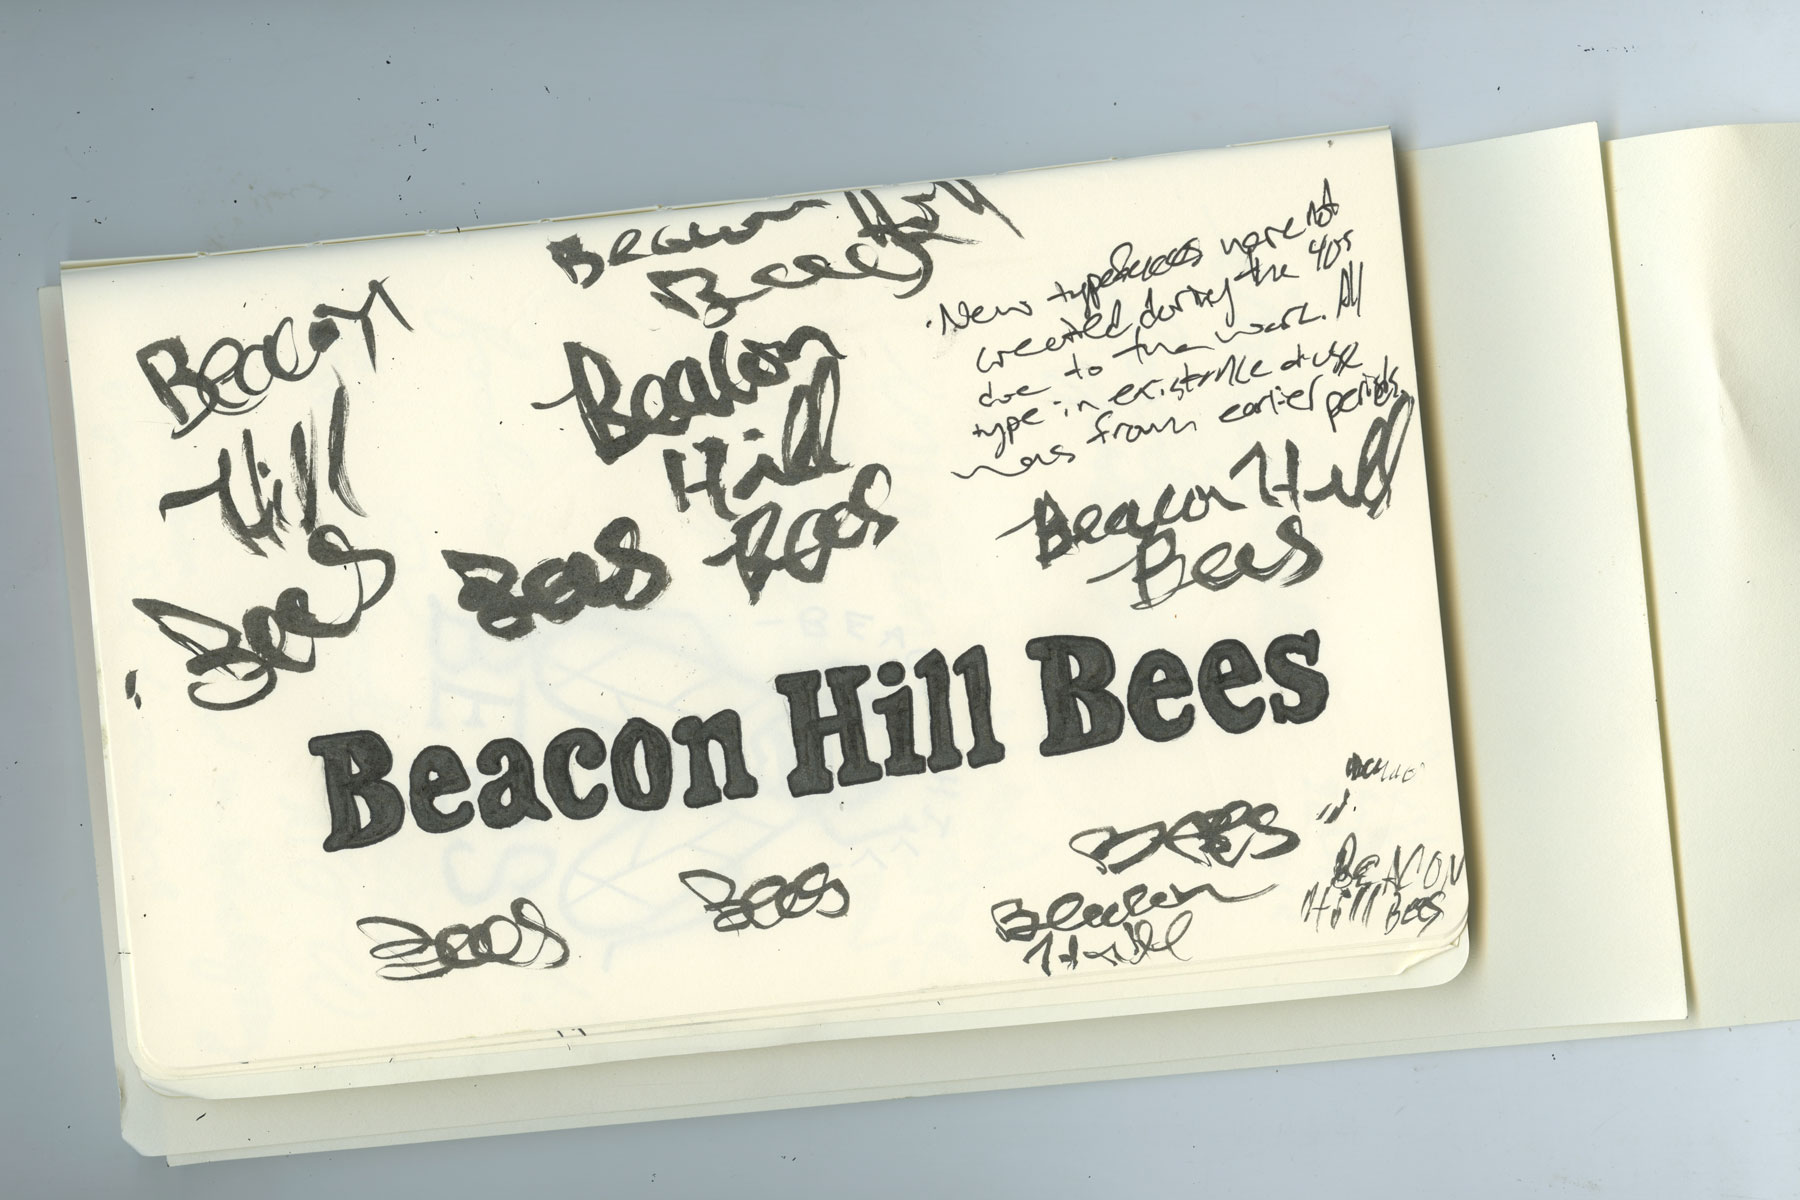 Beacon Hill
Bees
Beacon
Hill
Bees
Beacon
Hill
Bees
Bees
• New typefaces were not
created during the 40s
due to the war. All
type in existence + use
was from earlier periods
Beacon Hill
Bees
Beacon Hill Bees
Bees
Bees
Bees
Beacon
Hill
BEACON
Hill Bees